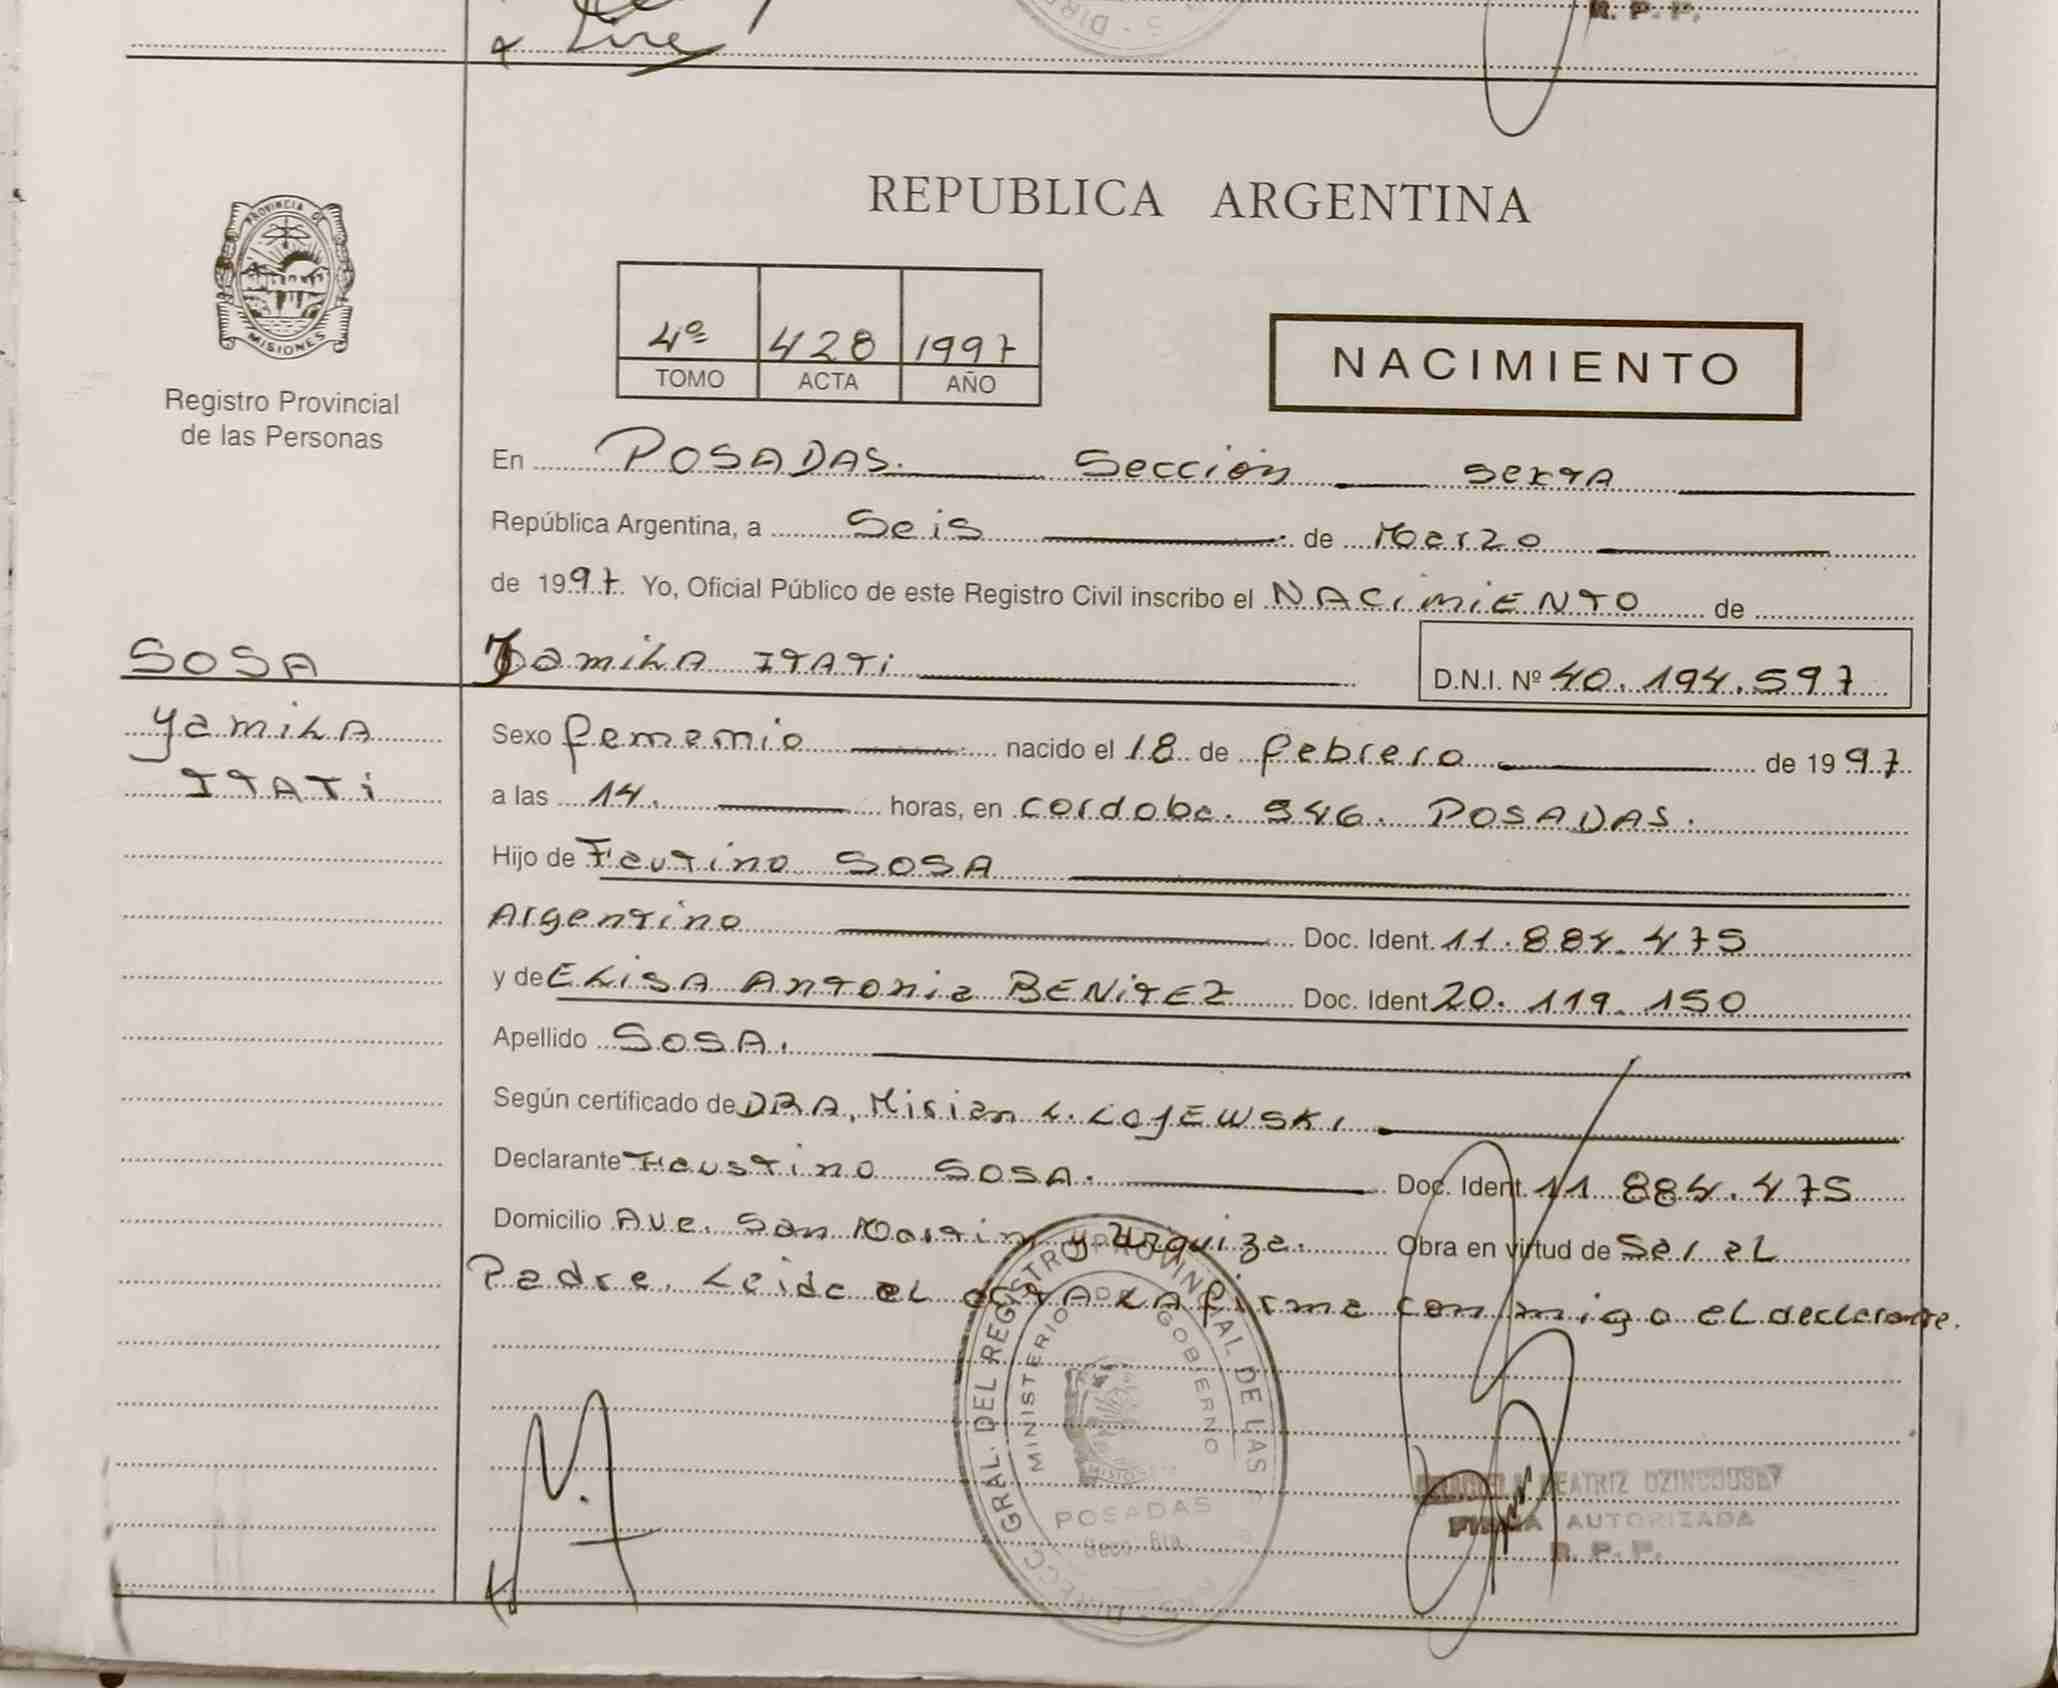 R. P. P.
PROVINCIA DE
MISIONES
Registro Provincial
de las Personas
REPUBLICA ARGENTINA
4º 428 1997
TOMO ACTA AÑO
NACIMIENTO
En POSADAS. Sección sexta
República Argentina, a Seis de Marzo
de 1997. Yo, Oficial Público de este Registro Civil inscribo el NACIMIENTO de
SOSA
Yamila ITATI
D.N.I. Nº 40.194.597
Yamila
ITATI
Sexo femenio nacido el 18 de febrero de 1997
a las 14. horas, en cordoba. 946. POSADAS.
Hijo de Fautino SOSA
Argentino Doc. Ident. 11.884.475
y de ELISA Antonia BENITEZ Doc. Ident 20.119.150
Apellido SOSA.
Según certificado de DRA, Mirian L. LOJEWSKI
Declarante Faustino SOSA. Doc. Ident. 11 884.475
Domicilio Ave. San Martin y Urquiza. Obra en virtud de Ser el
Padre. Leida el acta LA firma conmigo el declarante.
DIRECC. GRAL. DEL REGISTRO PROVINCIAL DE LAS
MINISTERIO DE GOBIERNO
MISIONES
POSADAS
Secc. 6ta.
BEATRIZ
FIRMA AUTORIZADA
R. P. P.